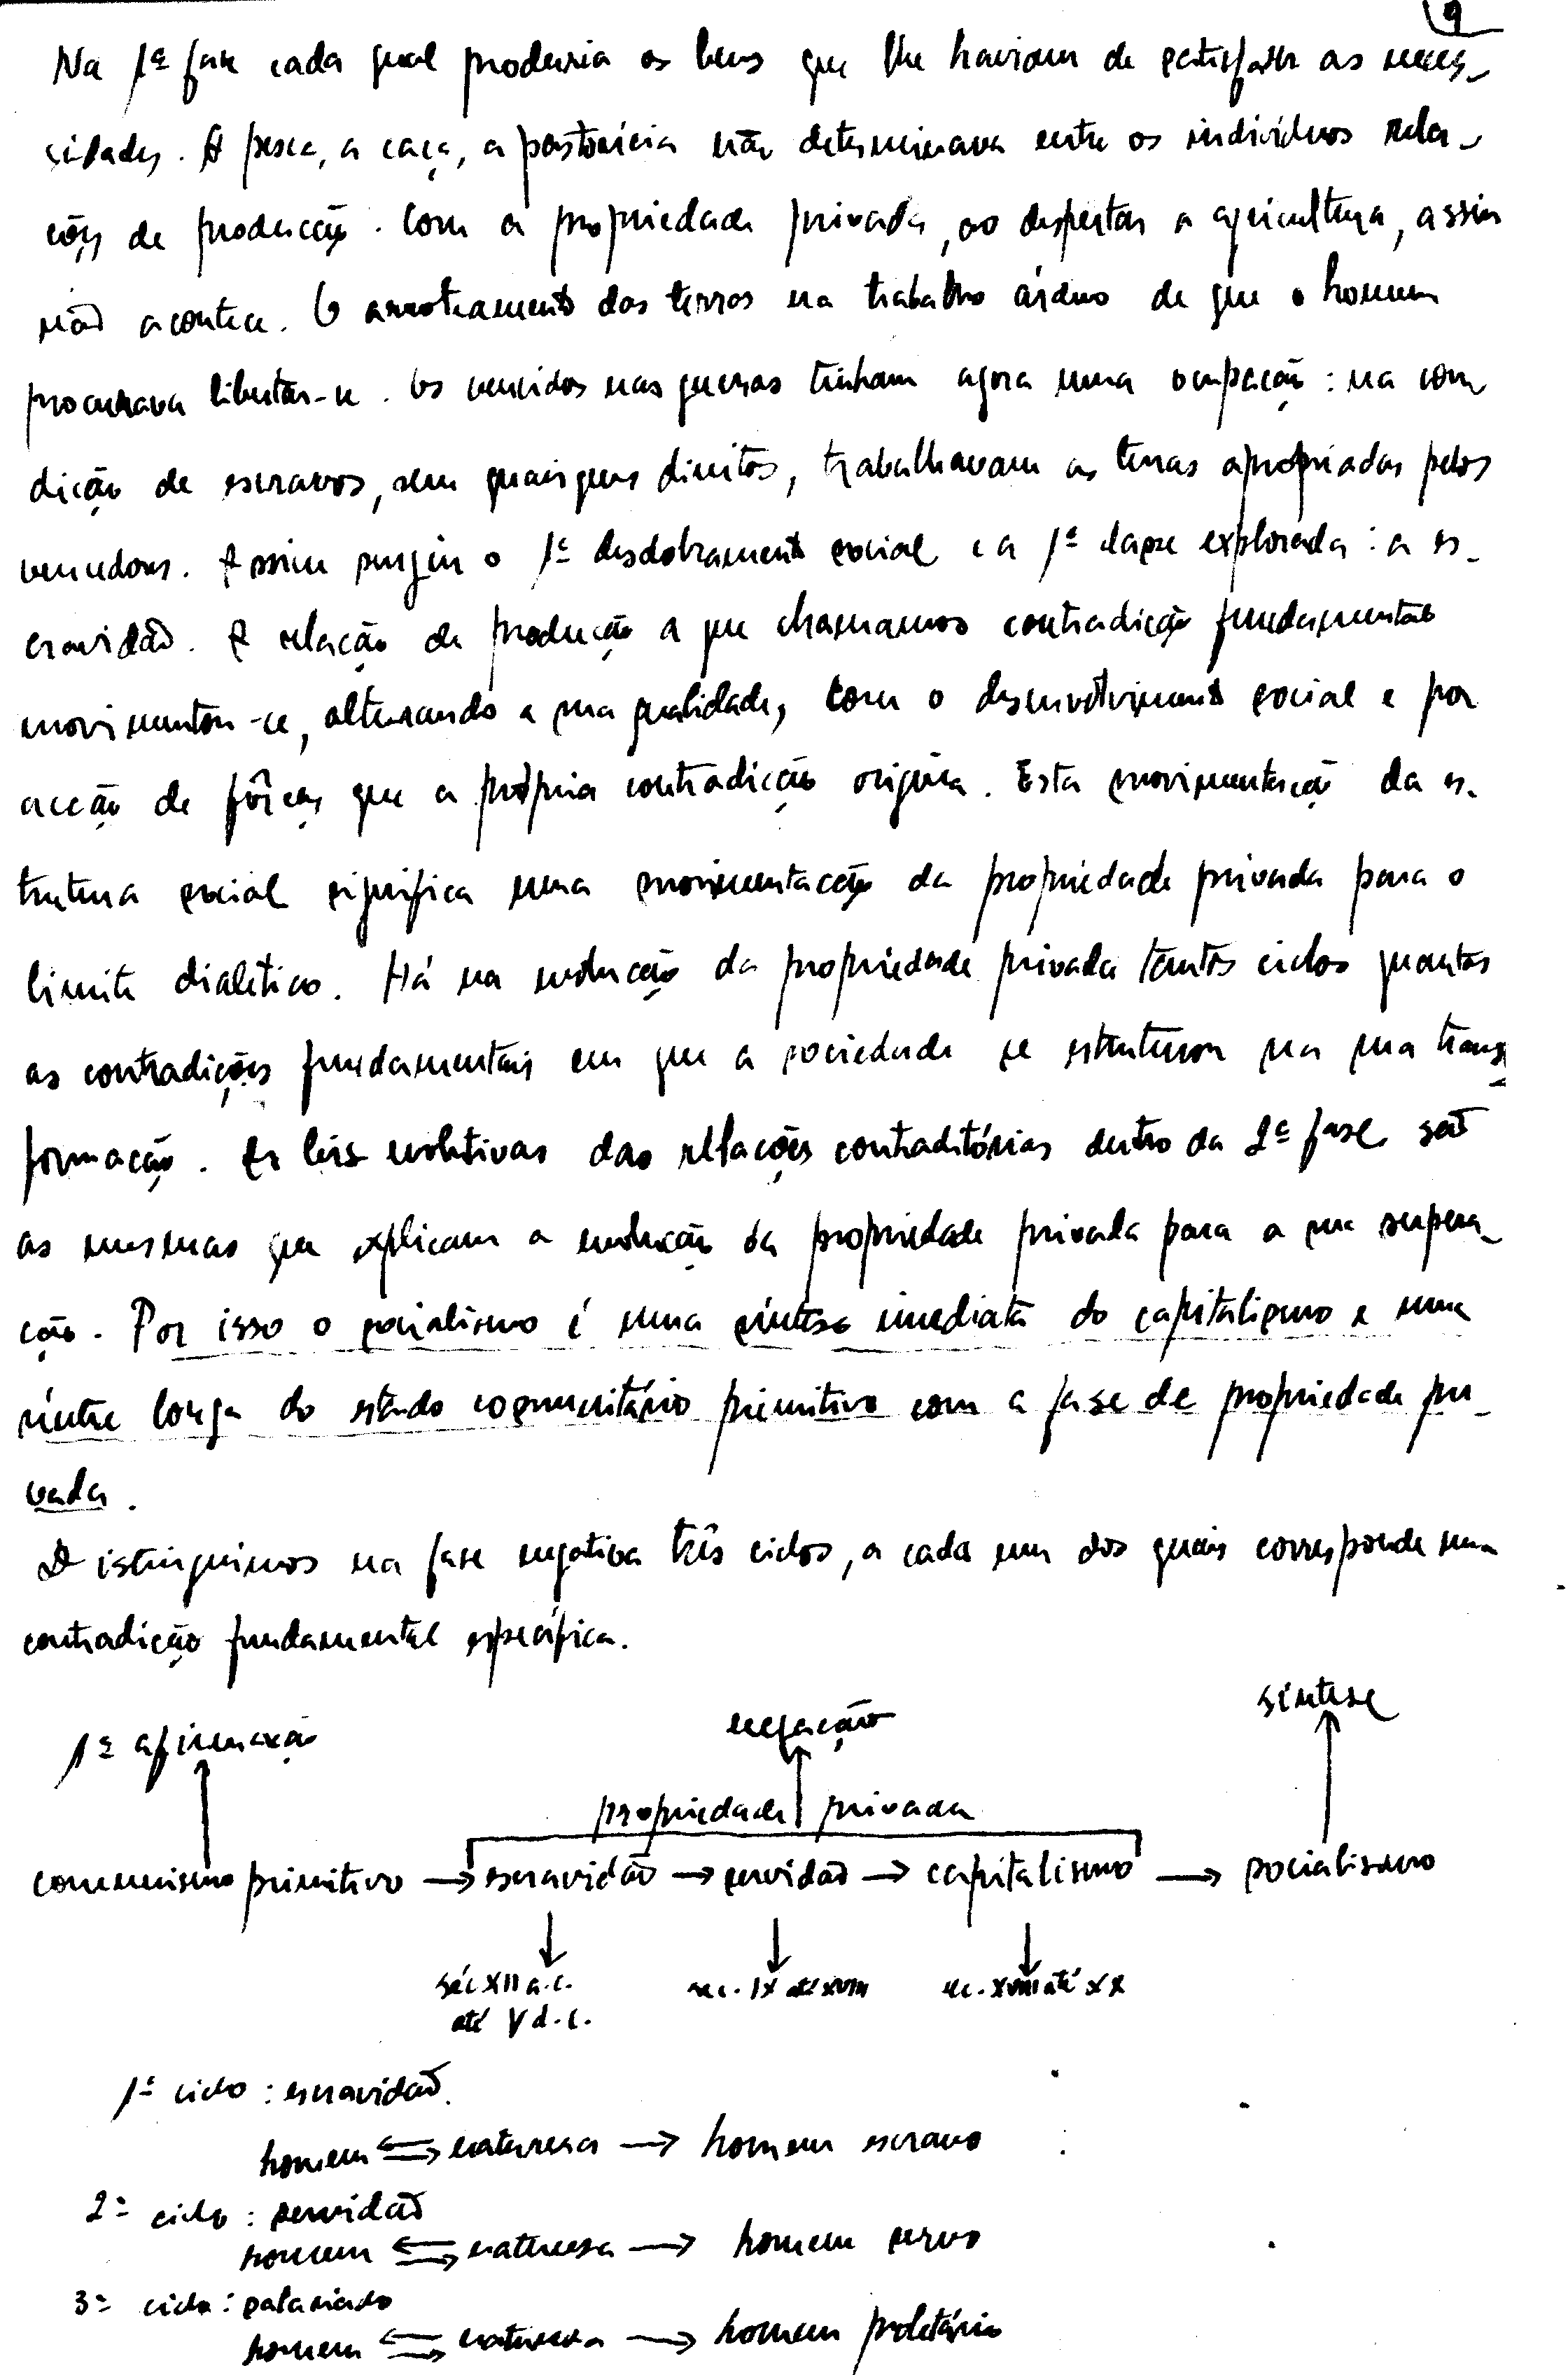 9
Na 1ª fase cada qual produzia os bens que lhe haviam de satisfazer as neces-
sidades. A pesca, a caça, a pastorícia não determinava entre os indivíduos rela-
ções de producção. Com a propriedade privada, ao despertar a agricultura, assim
não acontece. O arroteamento das terras era trabalho árduo de que o homem
procurava libertar-se. Os vencidos nas guerras tinham agora uma ocupação: na con
dição de escravos, sem quaisquer direitos, trabalhavam as terras apropriadas pelos
vencedores. Assim surgiu o 1º desdobramento social e a 1ª classe explorada: a es-
cravidão. A relação de producção a que chamamos contradição fundamental
movimentou-se, alterando a sua qualidade, com o desenvolvimento social e por
acção de fôrças que a própria contradição origina. Esta movimentação da es-
trutura social significa uma movimentação da propriedade privada para o
limite dialético. Há na evolução da propriedade privada tantos ciclos quantas
as contradições fundamentais em que a sociedade se estruturou na sua trans-
formação. As leis evolutivas das relações contraditórias dentro da 2ª fase são
as mesmas que explicam a evolução da propriedade privada para a sua supera-
ção. Por isso o socialismo é uma síntese imediata do capitalismo e uma
síntese longa do estado comunitário primitivo com a fase de propriedade pri-
vada.
Distinguimos na fase negativa três ciclos, a cada um dos quais corresponde uma
contradição fundamental específica.
1ª afirmação negação síntese
propriedade privada
comunismo primitivo → escravidão → servidão → capitalismo → socialismo
séc XII a.c. sec. IX até XVIII sec. XVIII até XX
até V d.c.
1º ciclo: escravidão.
homem ⇆ natureza → homem escravo
2º ciclo: servidão
homem ⇆ natureza → homem servo
3º ciclo: salariado
homem ⇆ natureza → homem proletário